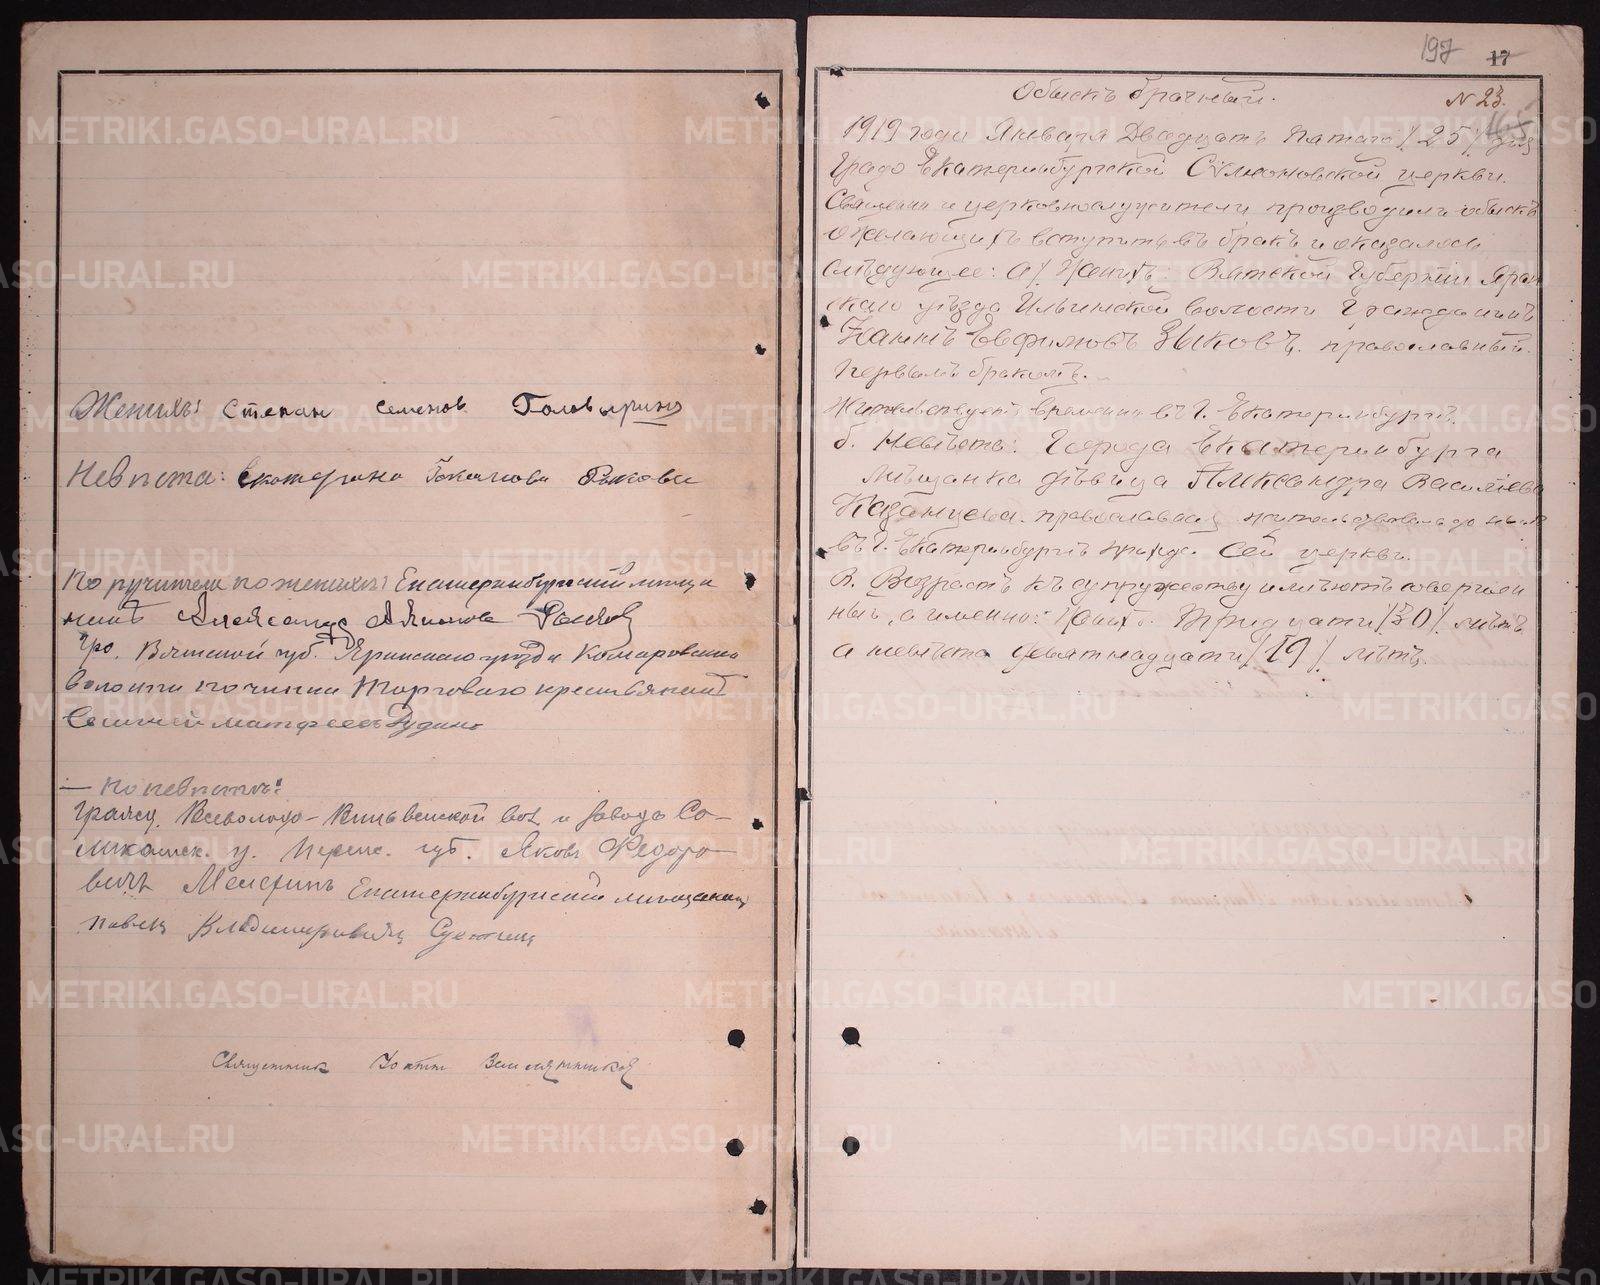 Женихъ: Степан Семенов Головырин
Невѣста: Екатерина
Поручители по женихѣ: Екатеринбургский мѣща
нинъ Александр Рыков
Гр. Вятской губ. Яранского уѣзда Комаровской
волости починка Торговаго крестьянинъ
Матфеевъ Дудин
— По невѣстѣ:
Гражд. Всеволодо-Вильвенской вол. и завода Со-
ликамск. у. Перм. губ. Яковъ Федоро-
вичъ Екатеринбургский мѣщанин
Павел Владимирович
Священник Иоанн
197 17
Обыскъ брачный.
N 23.
1919 года Января Двадцать Пятаго /25/ дня
Градо Екатеринбургской Симеоновской церкви.
Священно и церковнослужители производили обыскъ
о желающихъ вступить въ бракъ и оказалось
слѣдующее: а/ Женихъ: Вятской Губернии Яран
скаго уѣзда Ильинской волости Гражданинъ
Иоаннъ Евфимовъ Зыковъ. православный.
Первымъ бракомъ.
Жительствуетъ временно въ г. Екатеринбургѣ.
б. Невѣста: Города Екатеринбурга
Мѣщанка дѣвица Александра Василиева
Казанцева. православная, жительствовала до нынѣ
въ г. Екатеринбургѣ приходѣ Сей церкви.
В. Возрастъ къ супружеству имѣютъ совершен
ный, а именно: Женихъ Тридцати /30/ лѣтъ
а невѣста девятнадцати /19/ лѣтъ.
METRIKI.GASO-URAL.RU